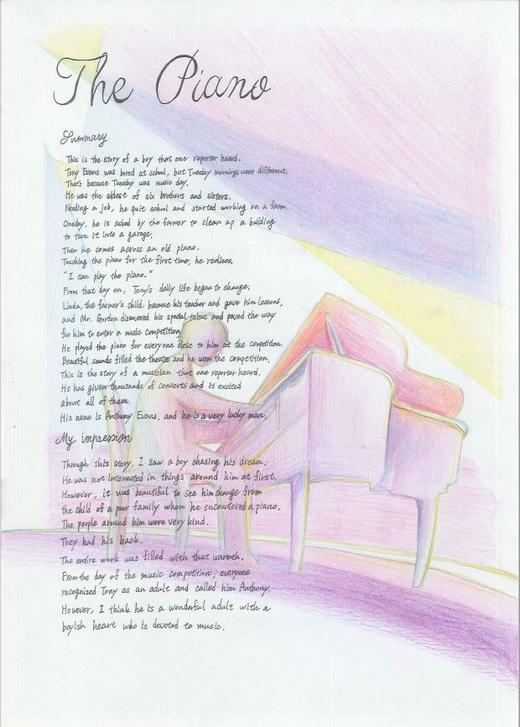 The Piano
Summary
This is the story of a boy that one reporter heard.
Tony Evans was bored at school, but Tuesday mornings were different.
That's because Tuesday was music day.
He was the oldest of six brothers and sisters.
Needing a job, he quit school and started working on a farm.
Oneday, he is asked by the farmer to clean up a building
to turn it into a garage.
Then he comes across an old piano.
Touching the piano for the first time, he realizes,
"I can play the piano."
From that day on, Tony's daily life began to change.
Linda, the farmer's child, became his teacher and gave him lessons,
and Mr. Gordon discovered his special talent and paved the way
for him to enter a music competition.
He played the piano for everyone close to him at the competition.
Beautiful sounds filled the theater and he won the competition.
This is the story of a musician that one reporter heard.
He has given thousands of concerts and is excited
about all of them.
His name is Anthony Evans, and he is a very lucky man.
My impression
Through this story, I saw a boy chasing his dream.
He was not interested in things around him at first.
However, it was beautiful to see him change from
the child of a poor family when he encountered a piano.
The people around him were very kind.
They had his back.
The entire work was filled with that warmth.
From the day of the music competition, everyone
recognized Tony as an adult and called him Anthony.
However, I think he is a wonderful adult with a
boyish heart who is devoted to music.